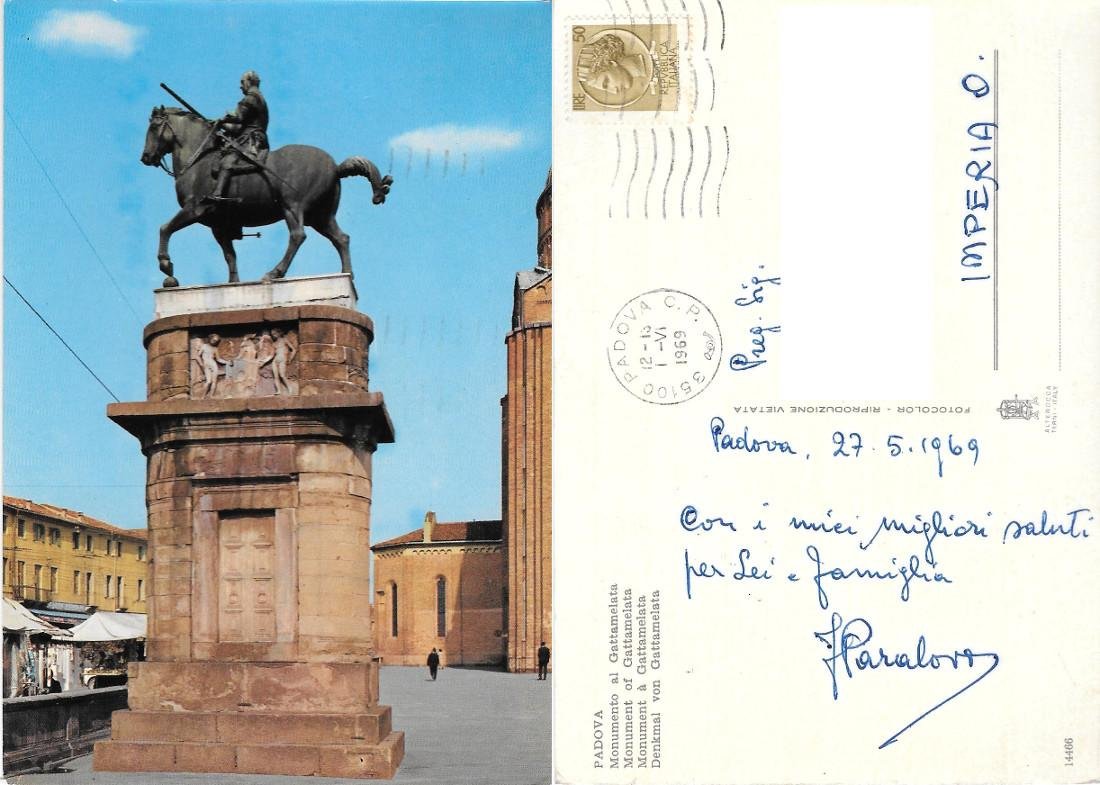 50
LIRE
REPVBBLICA
ITALIANA
PADOVA C.P.
12-13
1-VI
1969
35100
Preg. Sig.
IMPERIA O.
FOTOCOLOR - RIPRODUZIONE VIETATA
ALTEROCCA
TERNI - ITALY
Padova, 27.5.1969
Con i miei migliori saluti
per Lei e famiglia
PADOVA
Monumento al Gattamelata
Monument of Gattamelata
Monument à Gattamelata
Denkmal von Gattamelata
14466